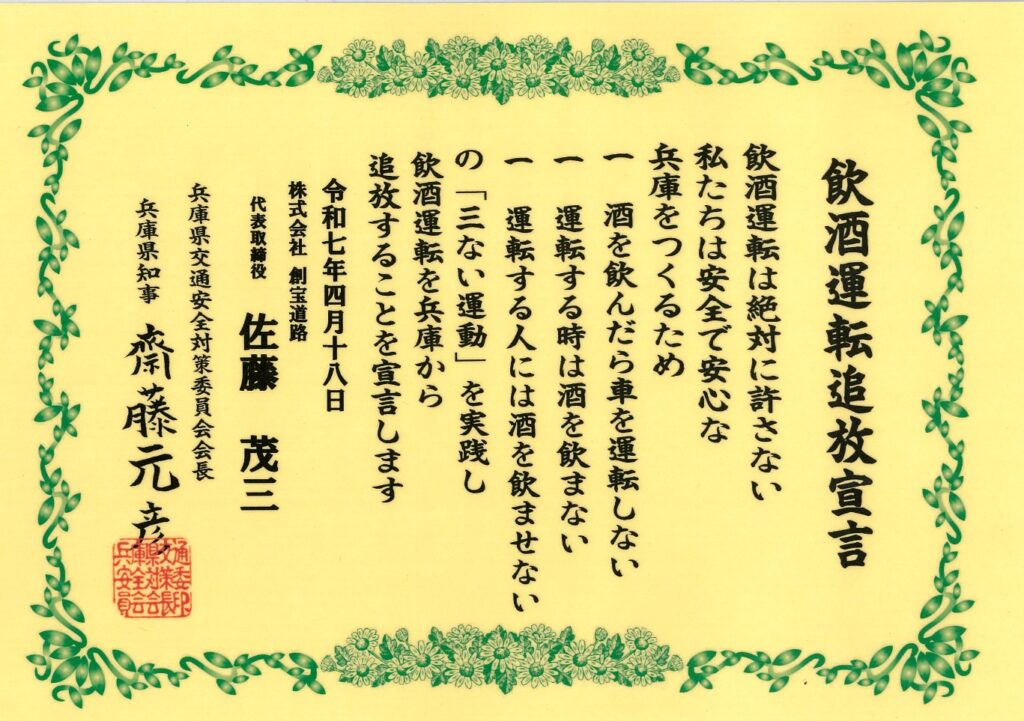 飲酒運転追放宣言
飲酒運転は絶対に許さない
私たちは安全で安心な
兵庫をつくるため
一 酒を飲んだら車を運転しない
一 運転する時は酒を飲まない
一 運転する人には酒を飲ませない
の「三ない運動」を実践し
飲酒運転を兵庫から
追放することを宣言します
令和七年四月十八日
株式会社 創宝道路
代表取締役 佐藤 茂三
兵庫県交通安全対策委員会会長
兵庫県知事 齋藤元彦